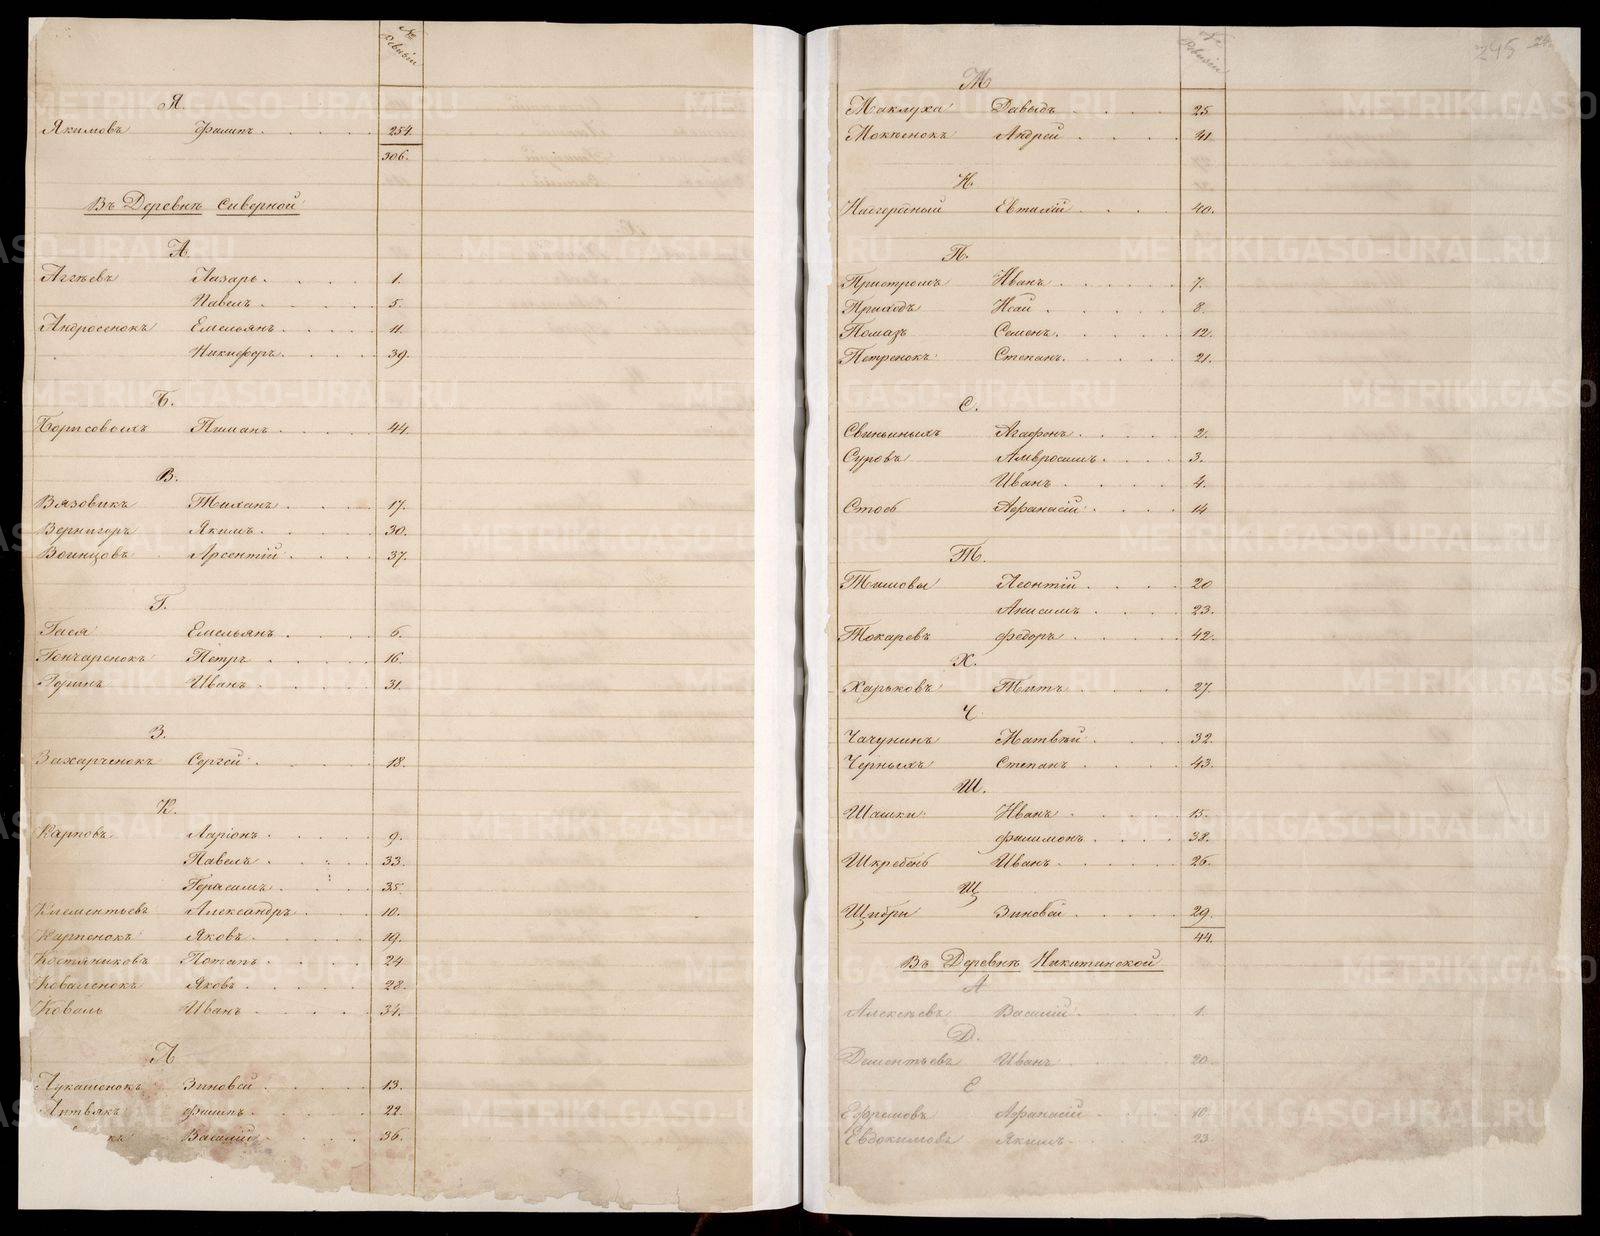 № Ревизіи
Я.
Якимовъ Филипъ 254.
306.
Въ Деревнѣ Сѣверной
А.
Аггѣевъ Лазарь 1.
Павелъ 5.
Андросенокъ Емельянъ 11.
Никифоръ 39.
Б.
Борисовыхъ Пиманъ 44.
В.
Вязовикъ Тиханъ 17.
Вернигоръ Якимъ 30.
Воинцовъ Арсентій 37.
Г.
Гася Емельянъ 6.
Гончаренокъ Петръ 16.
Горинъ Иванъ 31.
З.
Захарченокъ Сергей 18.
К.
Карповъ Ларіонъ 9.
Павелъ 33.
Герасимъ 35.
Клементьевъ Александръ 10.
Карпенокъ Яковъ 19.
Костяниковъ Потапъ 24
Коваленокъ Яковъ 28.
Коваль Иванъ 34.
Л
Лукашенокъ Зиновей 13.
Литвякъ Филипъ 22.
Василій 36.
245
№ Ревизіи
М
Маклуха Давыдъ 25
Андрей 41
Н.
Евтихій 40.
П.
Иванъ 7.
Приходъ Исай 8.
Помазъ Семенъ 12.
Петренокъ Степанъ 21.
С.
Свиньиныхъ Агафонъ 2.
Суровъ Амвросимъ 3.
Иванъ 4.
Афанасій 14
Т.
Титовы Леонтій 20
Анисимъ 23.
Токаревъ Федоръ 42.
Х.
Харьковъ Титъ 27.
Ч
Чачунинъ Матвѣй 32.
Черныхъ Степанъ 43.
Ш.
Шашки Иванъ 15.
Филимонъ 38.
Шкребень Иванъ 26.
Щ
Щибри Зиновей 29.
44.
Въ Деревнѣ Никитинской
А
Алексѣевъ Василій 1.
Д.
Дементьевъ Иванъ 20.
Е
Ефремовъ Афанасій 10.
Евдокимовъ Якимъ 23
METRIKI.GASO-URAL.RU